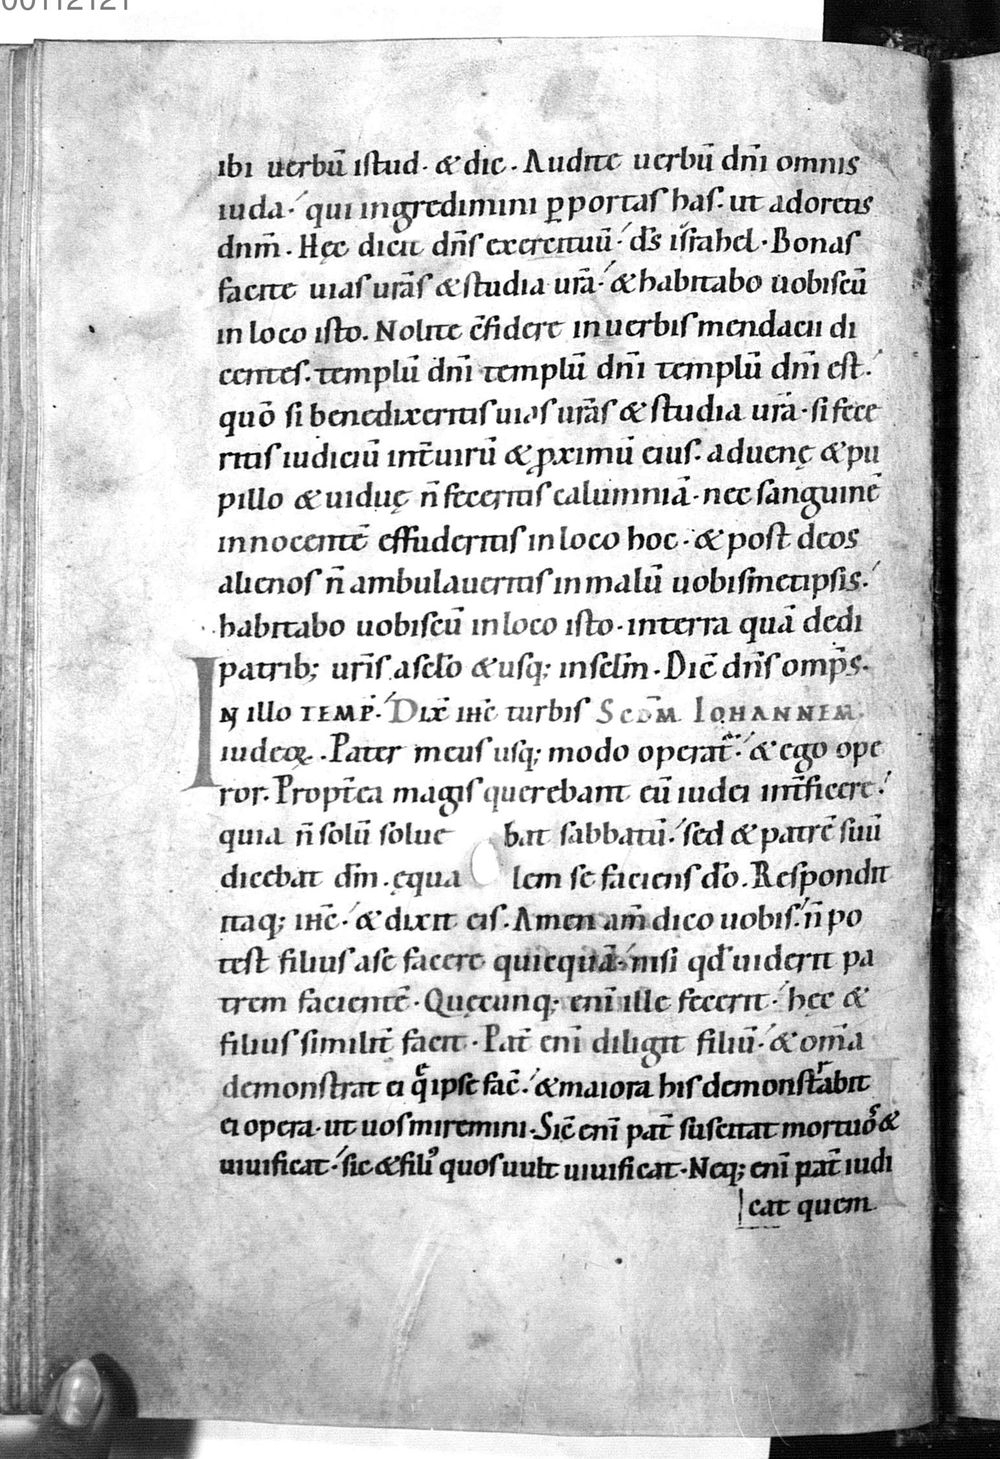 00112121
ibi uerbū istud· & dic· Audite uerbū dn̄i omnis
iuda·́ qui ingredimini ꝑ portas has· ut adoretis
dnm̄· Hęc dicit dn̄s exercituū·́ ds̄ isr̄ahel· Bonas
facite uias ur̄as & studia ur̄a·́ & habitabo uobiscū
in loco isto. Nolite c̄fidere in uerbis mendacii di
centes· templū dn̄i templū dn̄i templū dn̄i est·́
quō si benedixeritis uias ur̄as & studia ur̄a· si fece
ritis iudiciū int̄ uirū & ꝓximū eius· aduenę & pu
pillo & uiduę n̄ feceritis calumniā· nec sanguinē
innocentē effuderitis in loco hoc· & post deos
alienos n̄ ambulaueritis in malū uobismetipsis·́
habitabo uobiscū in loco isto· in terra quā dedi
patrib; ur̄is a sc̄lo & usq; in sc̄lm· Dic̄ dn̄s omp̄s·
IN illo TEMP̄·́ Dix̄ ih̄c turbis SCD̄M IOHANNEM·
iudeoꝝ· Pater meus usq; modo operat̄·́ & ego ope
ror· Propt̄ea magis querebant eū iudei int̄ficere·́
quia n̄ solū solue bat sabbatū·́ sed & patrē suū
dicebat dm̄· ęqua lem se faciens do̅· Respondit
itaq; ih̄c·́ & dixit eis· Amen am̄ dico uobis·́ n̄ po
test filius a se facere quicquā·́ nisi qd̄ uiderit pa
trem facientē· Quęcunq; eni̅ ille fecerit·́ hęc &
filius similit̄ facit· Pat̄ eni̅ diligit filiū·́ & om̄a
demonstrat ei q̄ ipse fac̄·́ & maiora his demonstrabit
ei opera· ut uos miremini· Sic̄ eni̅ pat̄ suscitat mortuos &
uiuificat·́ sic & fili᾿ quos uult uiuificat· Neq; eni̅ pat̄ iudi
cat quem